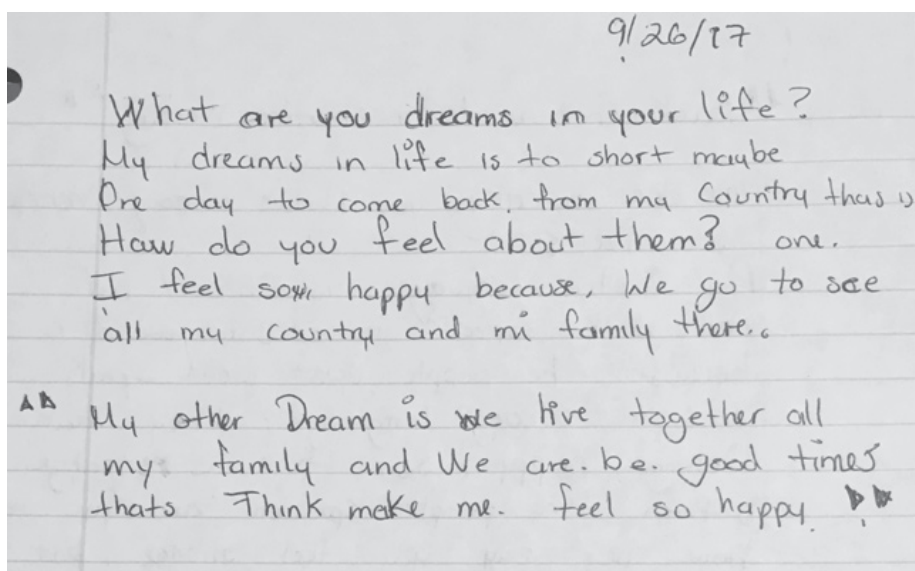 9/26/17
What are you dreams in your life?
My dreams in life is to short maybe
One day to come back. from my Country thas is
Haw do you feel about them? one.
I feel so happy because, We go to see
all my country and mi family there..
My other Dream is we live together all
my family and We are. be. good times
thats Think make me. feel so happy.